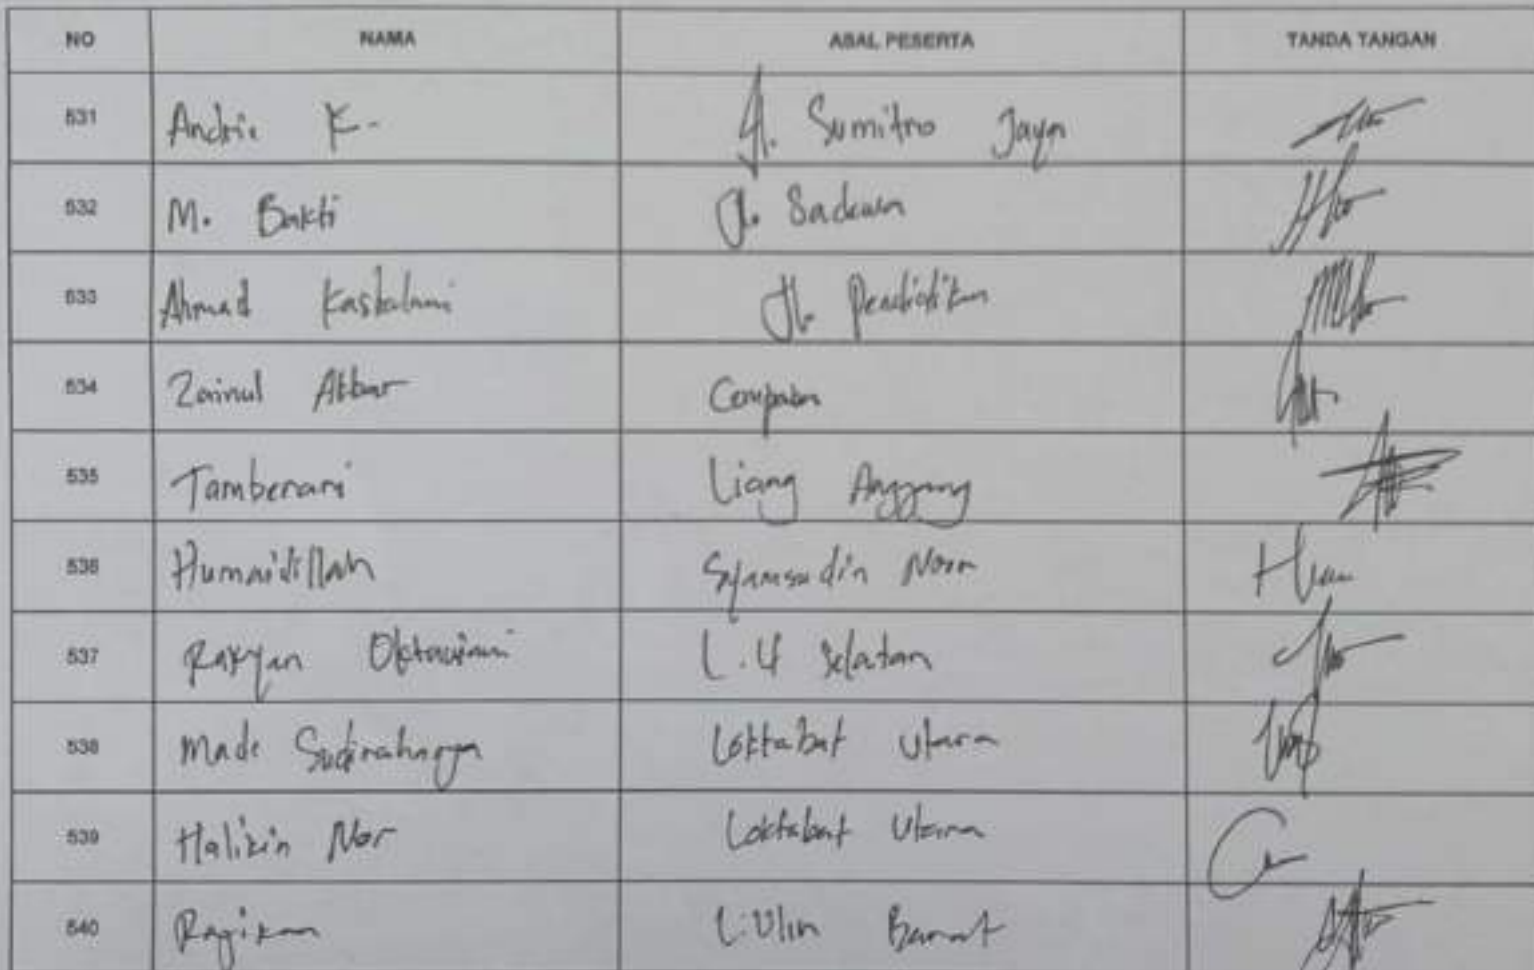 NO NAMA ASAL PESERTA TANDA TANGAN
531 Andrie K. Jl. Sumitro Jaya
532 M. Bakti Jl. Sadewa
533 Ahmad Kaskalani Jl. Pendidikan
534 Zainul Akbar Cempaka
535 Tamberani Liang Anggang
536 Humaidillah Syamsudin Noor
537 Rakyan Oktaviani L.U Selatan
538 Made Sudiraharga Loktabat Utara
539 Halikin Nor Loktabat Utara
540 Ragikan L.Ulin Barat